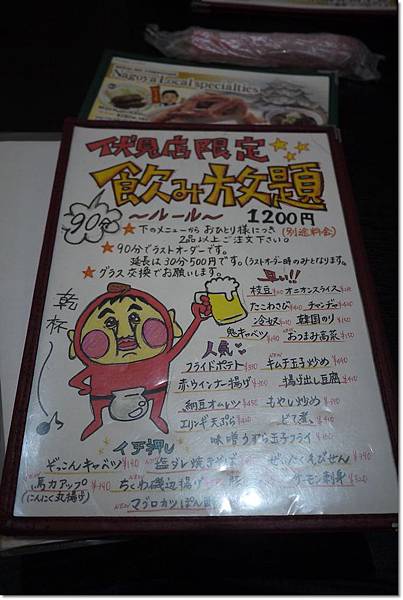 Nagoya Local specialties
伏見店限定
飲み放題
90分
～ルール～ 1200円
★下のメニューから おひとり様につき (別途料金)
2品以上ご注文下さい。
★90分でラストオーダーです。
延長は30分500円です。(ラストオーダー時のみとなります。
★グラス交換でお願いします。
早い!!
枝豆 オニオンスライス
たこわさび チャンジャ
冷奴 韓国のり
塩キャベツ おつまみ高菜
乾杯
人気
フライドポテト キムチ玉子炒め
赤ウインナー揚げ 揚げ出し豆腐
納豆オムレツ もやし炒め
エリンギ天ぷら どて煮
味噌うずら玉子フライ
イチ押し
ぞっこんキャベツ 塩ダレ焼きそば ぜいたくえびせん
馬力アップ ちくわ磯辺揚げ ケーモン刺身
(にんにく丸揚げ)
マグロカツぽん酢